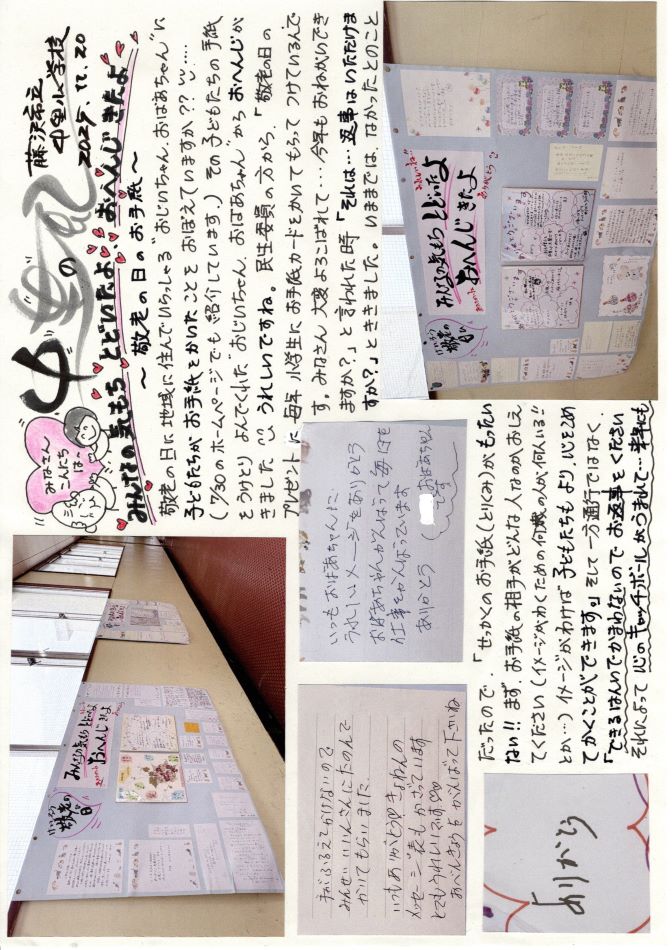 藤沢市立
中里小学校
2025.11.20
中里の
みなさん
こんにちは〜
みんなの気もち とどいたよ おへんじ きたよ
〜 敬老の日のお手紙 〜
敬老の日に地域に住んでいらっしゃる"おじいちゃん、おばあちゃん"に
子どもたちがお手紙をかいたことをおぼえていますか??
(7/30のホームページでも紹介しています。) その子どもたちの手紙
をうけとり よんでくれた"おじいちゃん、おばあちゃん"からおへんじが
きました うれしいですね。民生委員の方から、「敬老の日の
プレゼントに毎年小学生にお手紙カードをかいてもらって つけているんで
す。みなさん 大変よろこばれて…今年もおねがいでき
ますか?」と言われた時「それは…返事はいただけま
すか?」とききました。いままでは、なかったとのこと
だったので、「せっかくのお手紙(とりくみ)がもったい
ない!! まず、お手紙の相手がどんな人なのかおしえ
てください(イメージがわくための何歳の人が何人いる!!
とか…) イメージがわけば 子どもたちも より、心をこめ
てかくことができます。」そして一方通行ではなく、
「できるはんいでかまわないのでお返事をください
それによって心のキャッチボールがうまれて…
いつもおばあちゃんたちに
うれしいメッセージをありがとう
おばあちゃんがんばって毎日を
仕事をがんばっています
ありがとう
おばあちゃん
です
手がふるえてかけないので
みんせいいいんさんにたのんで
かいてもらいました。
いつもありがとう
メッセージ表もかざっています
とてもうれしいです
おべんきょうをがんばって下さいね
ありがとう
けいろう
敬老の
日
みんなの気もち とどいたよ
おへんじ きたよ
ありがとう
けいろう
敬老の
日
みんなの気もち とどいたよ
おへんじ きたよ